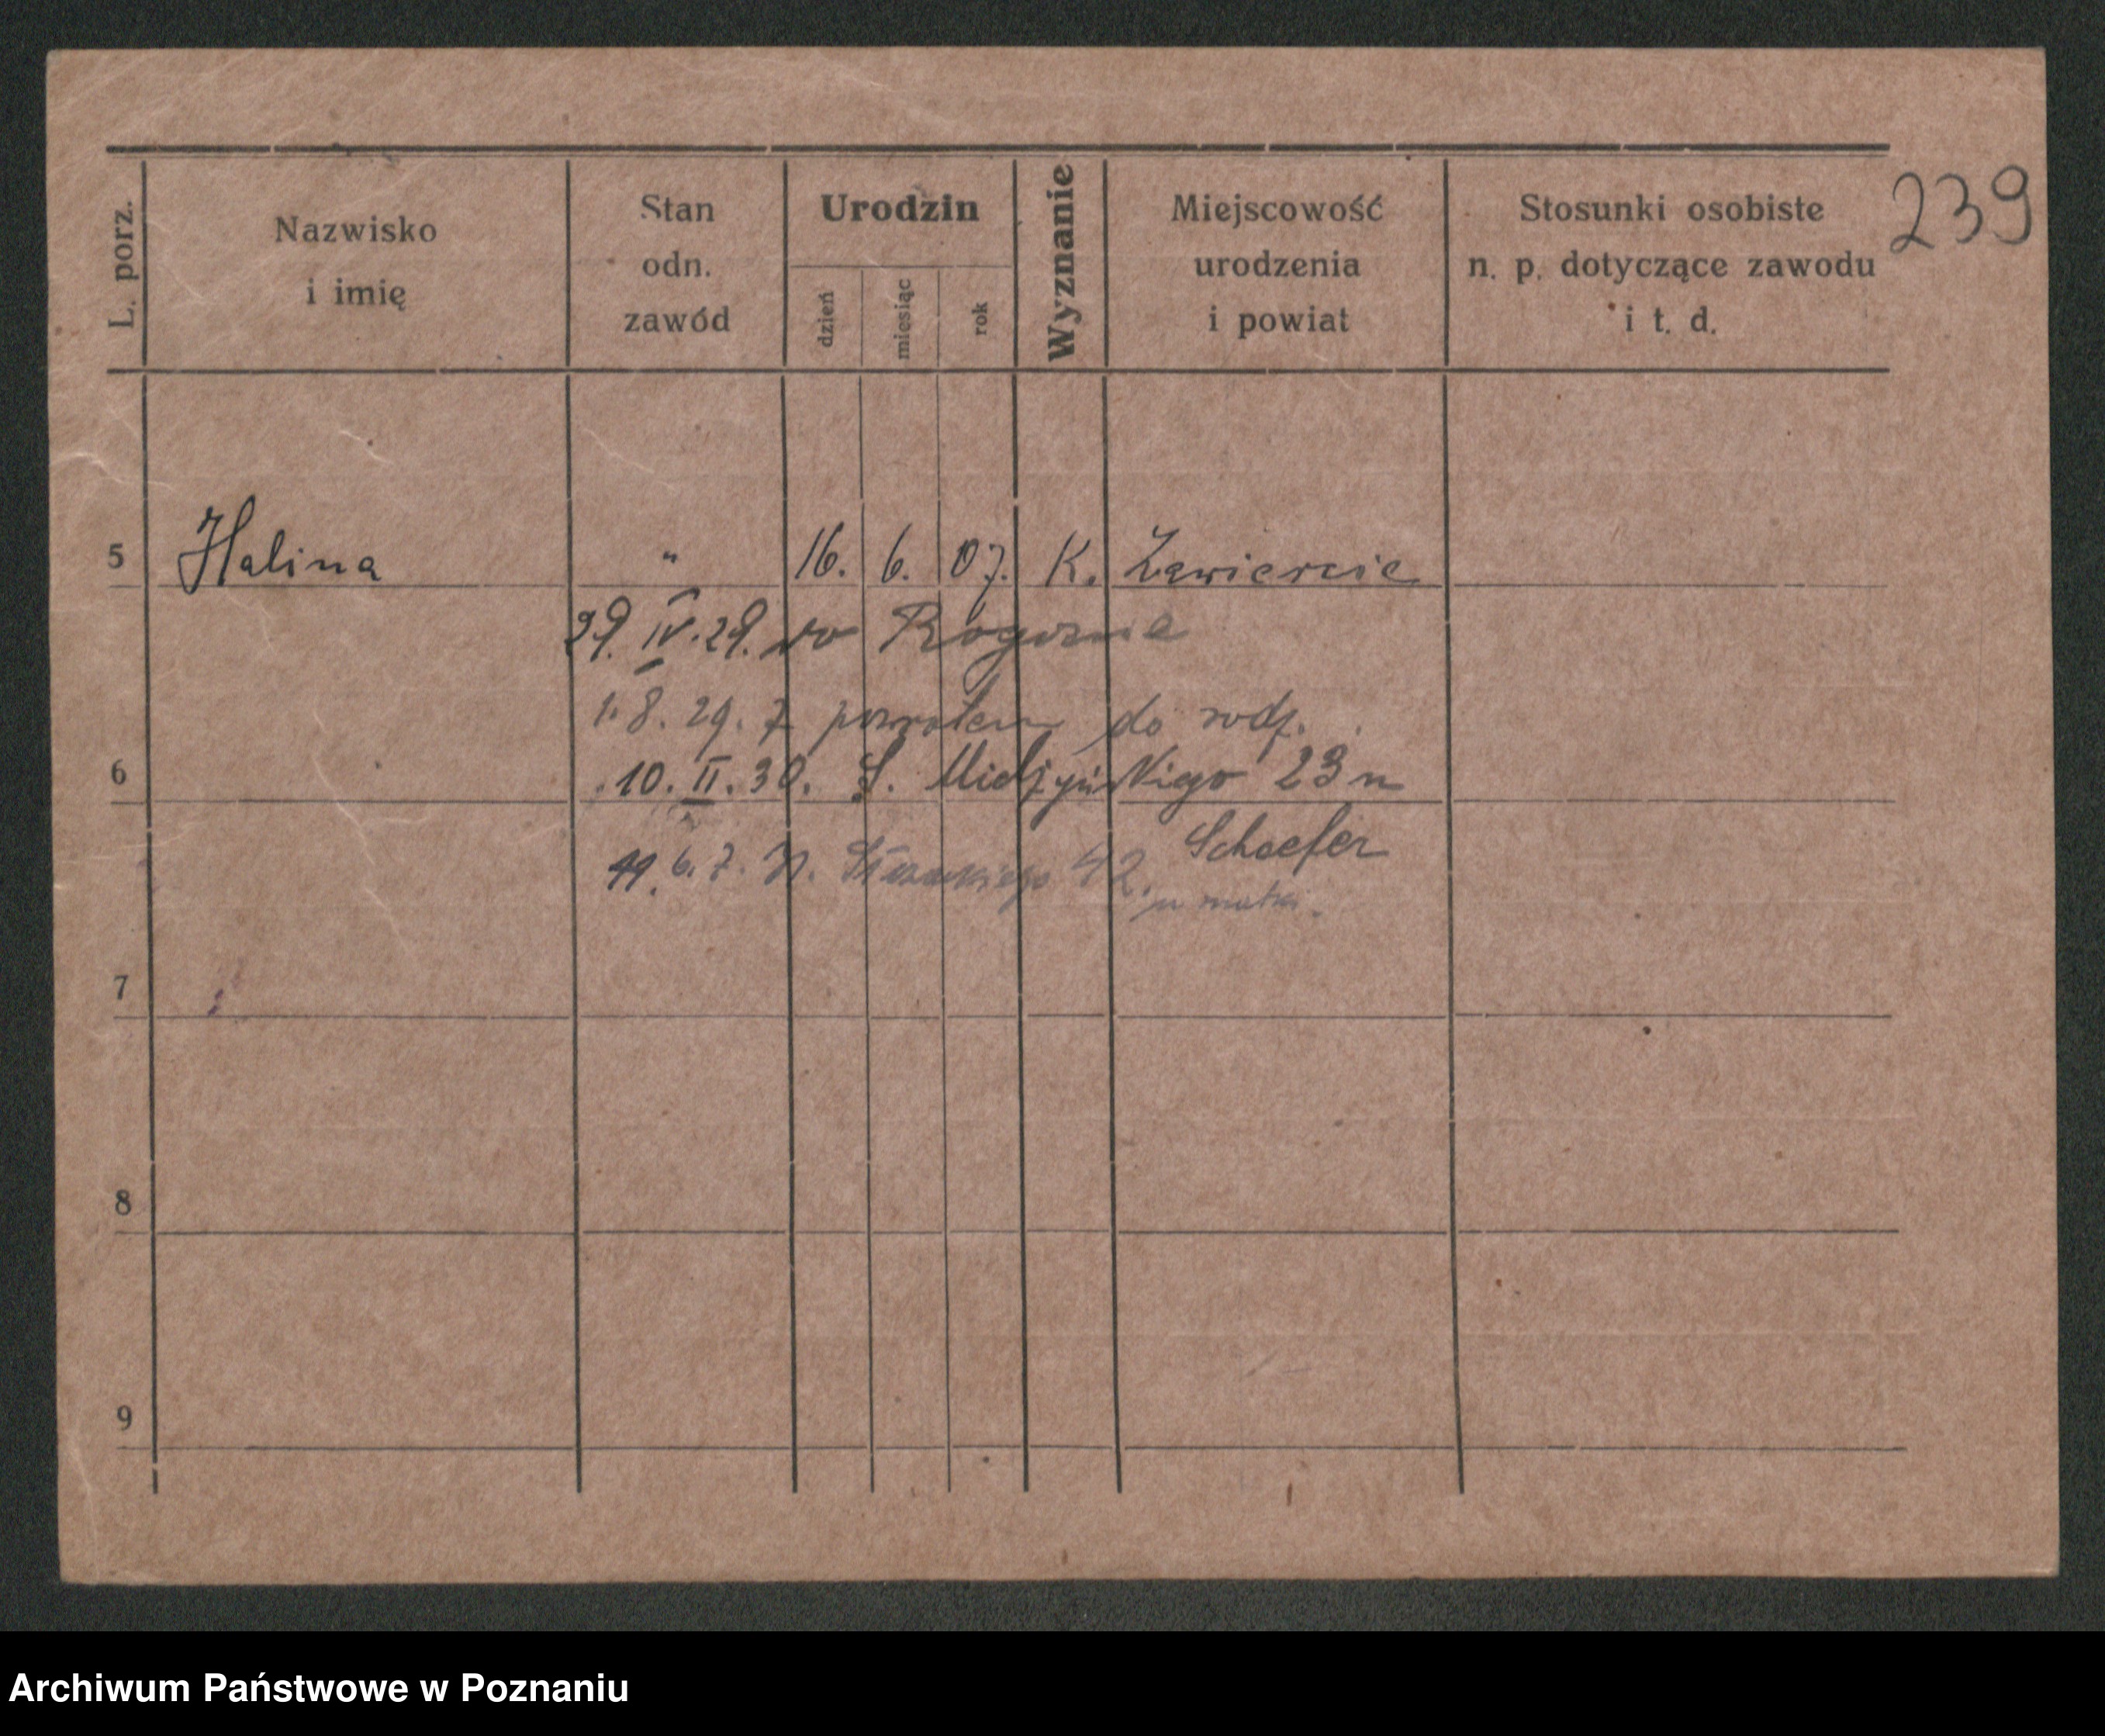 239
L. porz.
Nazwisko
i imię
Stan
odn.
zawód
Urodzin
dzień
miesiąc
rok
Wyznanie
Miejscowość
urodzenia
i powiat
Stosunki osobiste
n. p. dotyczące zawodu
i t. d.
5 Halina " 16. 6. 07. K. Zawiercie
29. IV. 29. do
1. 8. 29. z powrotem do rodz.
6
10. II. 30. S. Mielżyńskiego 23 n
Schaefer
6. 42.
u matki.
7
8
9
Archiwum Państwowe w Poznaniu